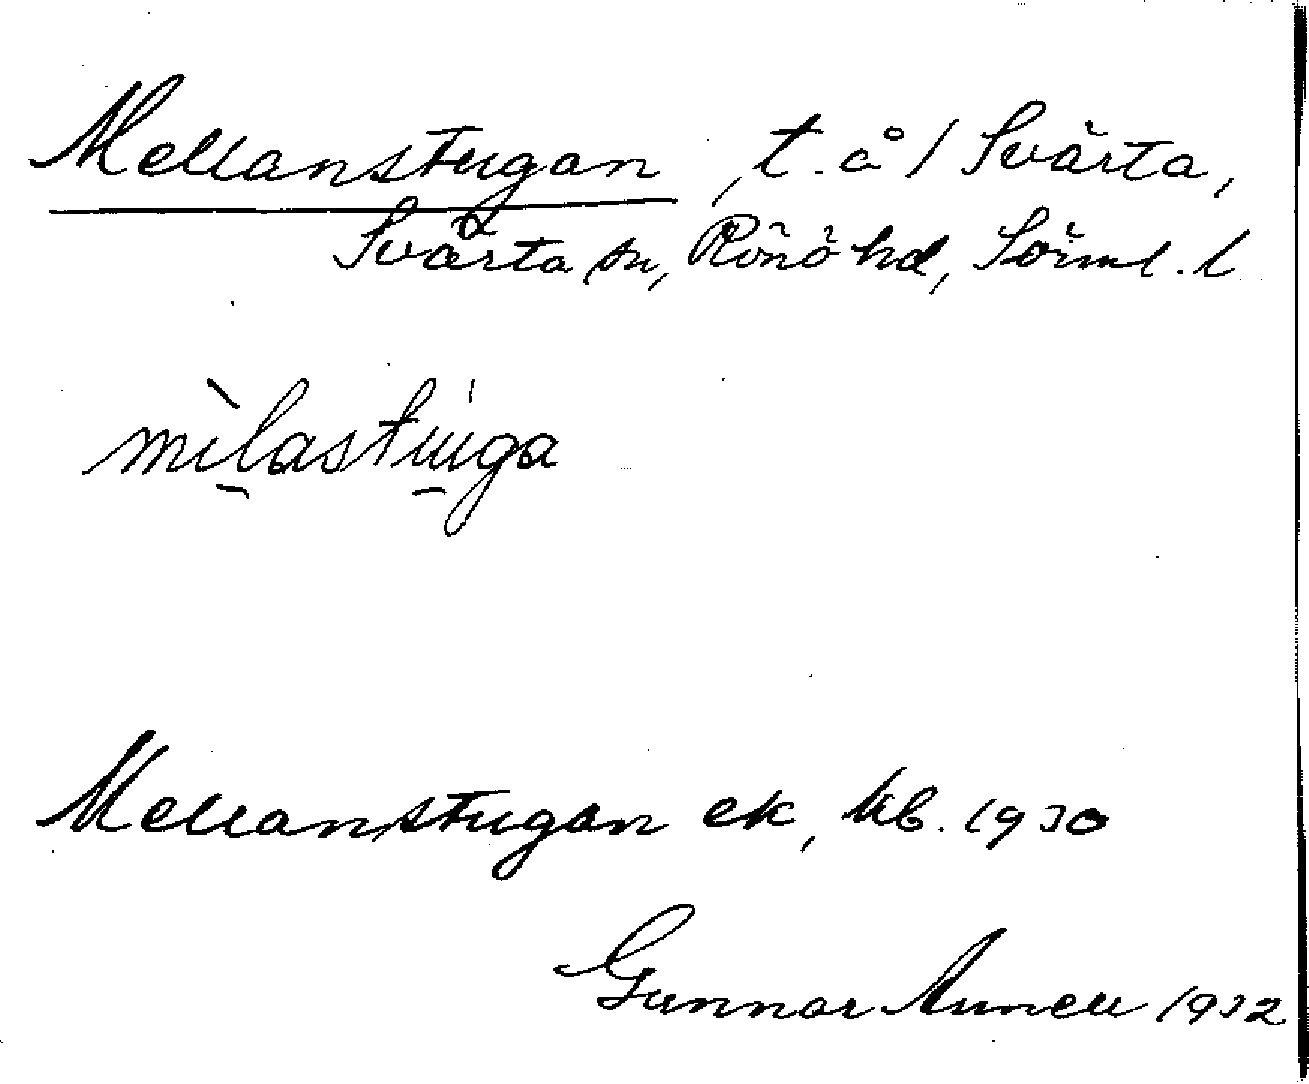 Mellanstugan, t. å / Svärta,
Svärta sn, Rönö hd, Söiml. l
mìlastuga
Mellanstugan ek, kb. 1930
Gunnar Annell 1932